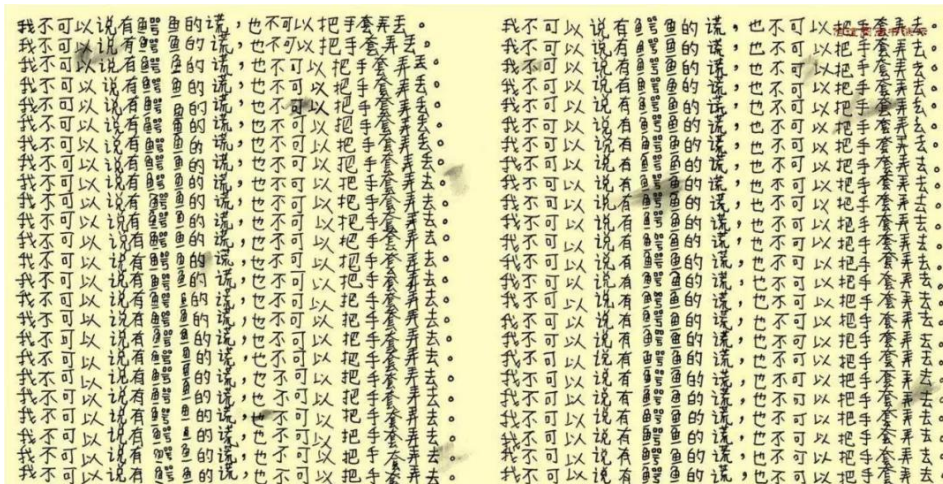 我不可以说有鳄鱼的谎，也不可以把手套弄丢。
我不可以说有鳄鱼的谎，也不可以把手套弄丢。
我不可以说有鳄鱼的谎，也不可以把手套弄丢。
我不可以说有鳄鱼的谎，也不可以把手套弄丢。
我不可以说有鳄鱼的谎，也不可以把手套弄丢。
我不可以说有鳄鱼的谎，也不可以把手套弄丢。
我不可以说有鳄鱼的谎，也不可以把手套弄丢。
我不可以说有鳄鱼的谎，也不可以把手套弄丢。
我不可以说有鳄鱼的谎，也不可以把手套弄去。
我不可以说有鳄鱼的谎，也不可以把手套弄去。
我不可以说有鳄鱼的谎，也不可以把手套弄去。
我不可以说有鳄鱼的谎，也不可以把手套弄去。
我不可以说有鳄鱼的谎，也不可以把手套弄去。
我不可以说有鳄鱼的谎，也不可以把手套弄去。
我不可以说有鳄鱼的谎，也不可以把手套弄去。
我不可以说有鳄鱼的谎，也不可以把手套弄去。
我不可以说有鳄鱼的谎，也不可以把手套弄去。
我不可以说有鳄鱼的谎，也不可以把手套弄去。
我不可以说有鳄鱼的谎，也不可以把手套弄去。
我不可以说有鳄鱼的谎，也不可以把手套弄去。
我不可以说有鳄鱼的谎，也不可以把手套弄去。
我不可以说有鳄鱼的谎，也不可以把手套弄去。
我不可以说有鳄鱼的谎，也不可以把手套弄去。
我不可以说有鳄鱼的谎，也不可以把手套弄去。
我不可以说有鳄鱼的谎，也不可以把手套弄去。
我不可以说有鳄鱼的谎，也不可以把手套弄去。
我不可以说有鳄鱼的谎，也不可以把手套弄去。
我不可以说有鳄鱼的谎，也不可以把手套弄去。
我不可以说有鳄鱼的谎，也不可以把手套弄去。
我不可以说有鳄鱼的谎，也不可以把手套弄去。
我不可以说有鳄鱼的谎，也不可以把手套弄去。
我不可以说有鳄鱼的谎，也不可以把手套弄去。
我不可以说有鳄鱼的谎，也不可以把手套弄去。
我不可以说有鳄鱼的谎，也不可以把手套弄去。
我不可以说有鳄鱼的谎，也不可以把手套弄去。
我不可以说有鳄鱼的谎，也不可以把手套弄去。
我不可以说有鳄鱼的谎，也不可以把手套弄去。
我不可以说有鳄鱼的谎，也不可以把手套弄去。
我不可以说有鳄鱼的谎，也不可以把手套弄去。
我不可以说有鳄鱼的谎，也不可以把手套弄去。
我不可以说有鳄鱼的谎，也不可以把手套弄去。
我不可以说有鳄鱼的谎，也不可以把手套弄去。
我不可以说有鳄鱼的谎，也不可以把手套弄去。
我不可以说有鳄鱼的谎，也不可以把手套弄去。
我不可以说有鳄鱼的谎，也不可以把手套弄去。
我不可以说有鳄鱼的谎，也不可以把手套弄去。
我不可以说有鳄鱼的谎，也不可以把手套弄去。
我不可以说有鳄鱼的谎，也不可以把手套弄去。